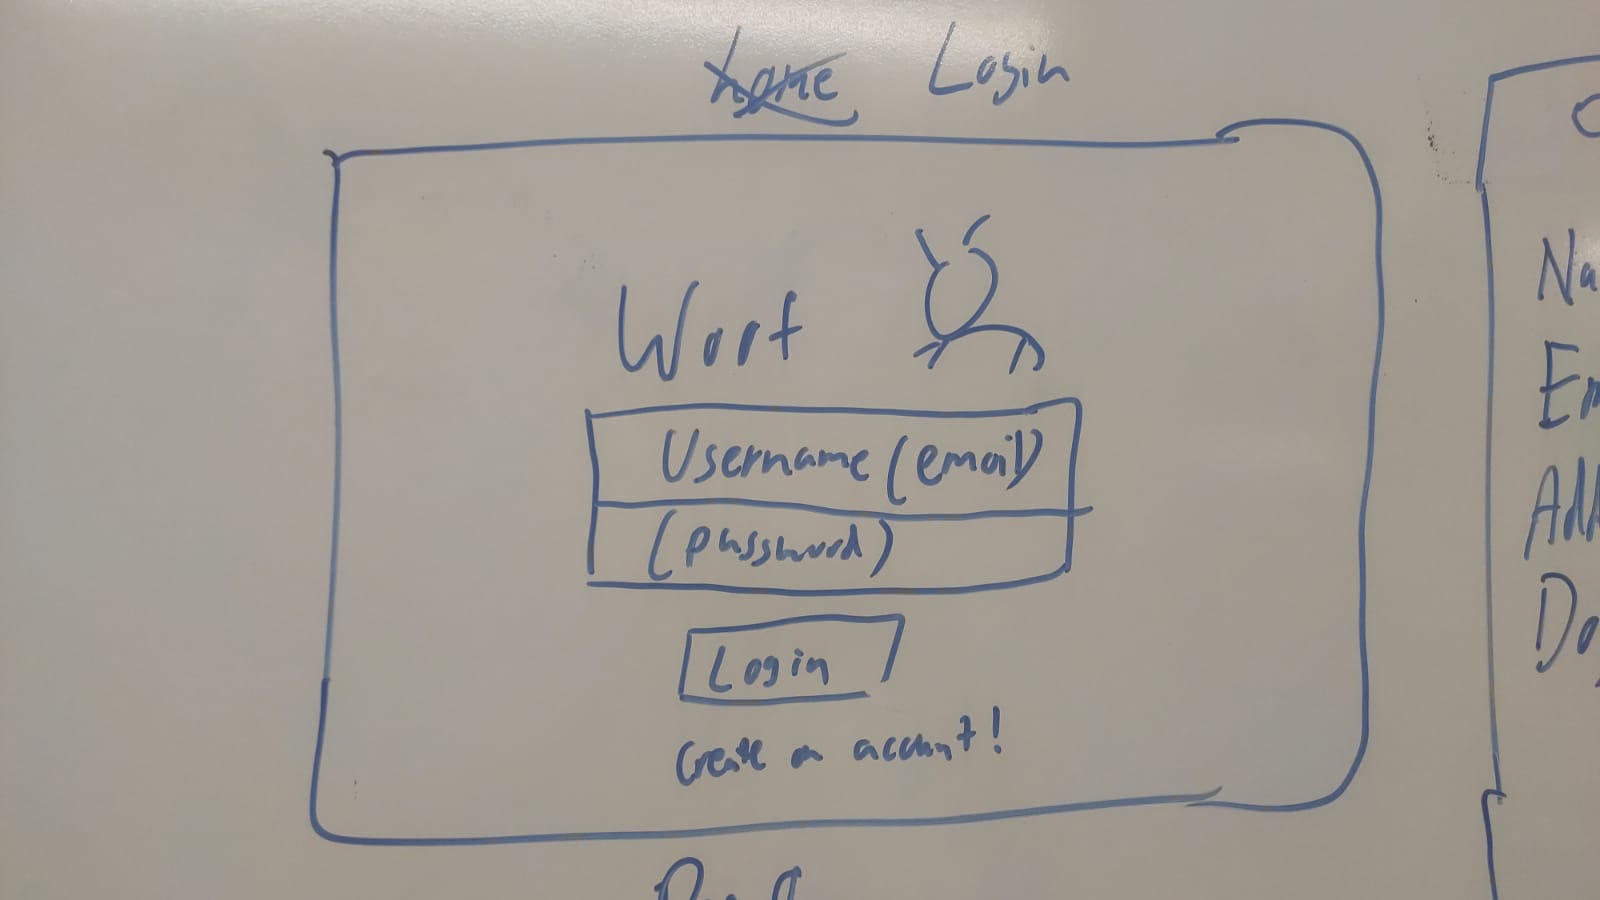 Home Login
Woof
Username (email)
(password)
Login
Create an account!
Na
Em
Add
Do